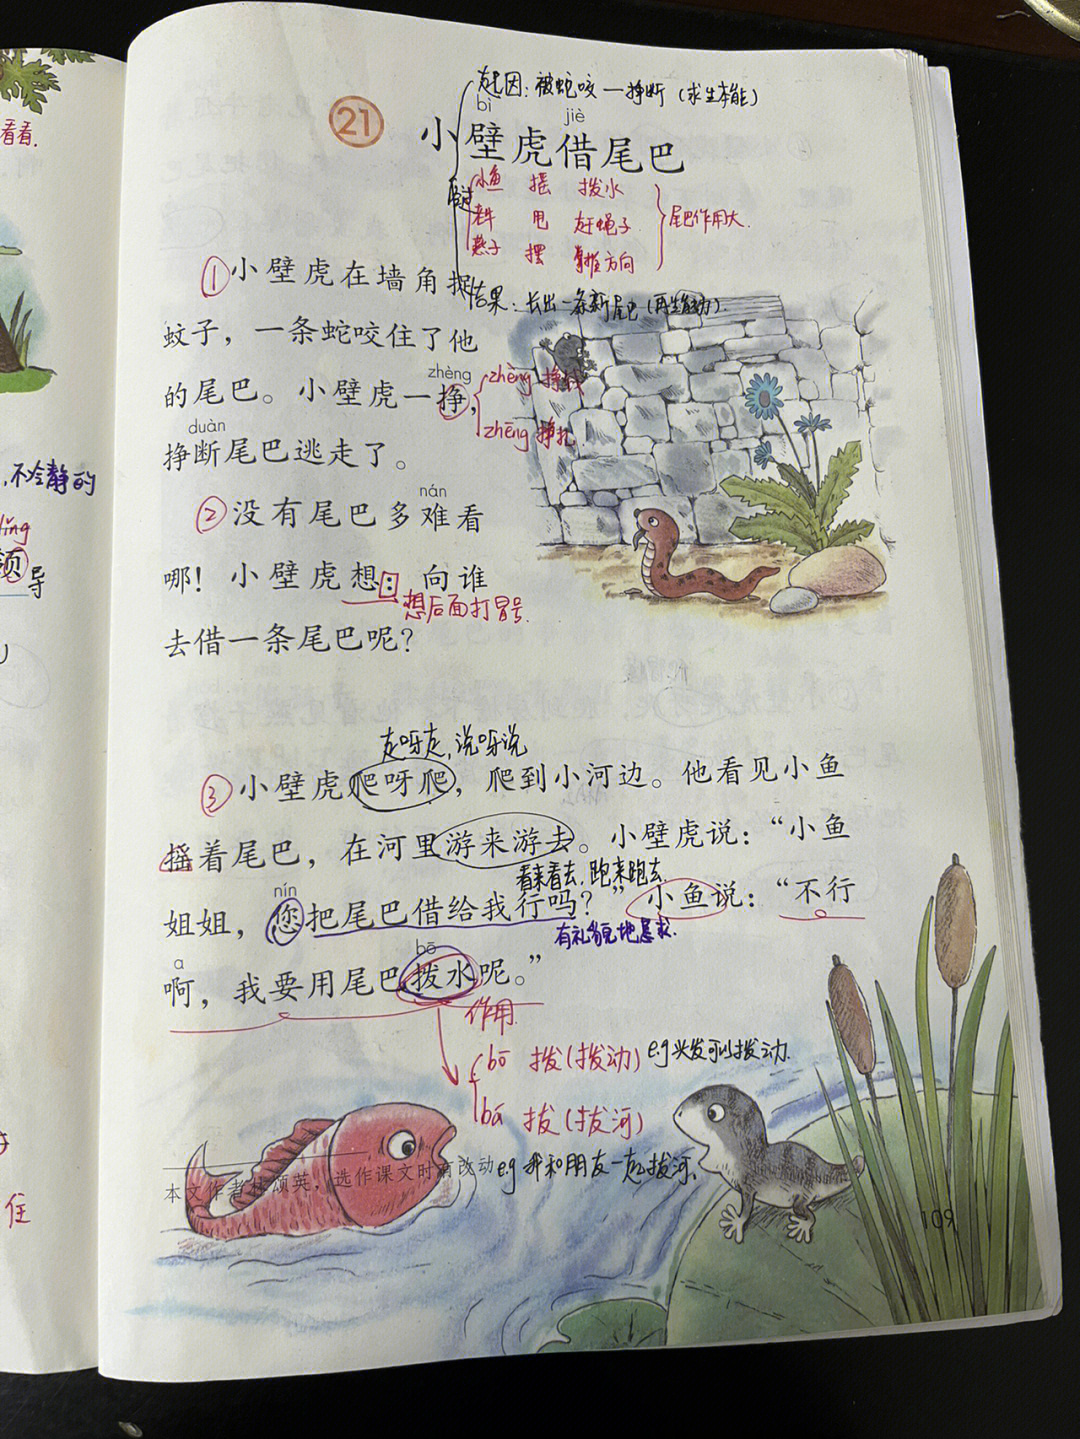 看看.
,不冷静的
lǐng
领导
住
起因：被蛇咬一挣断（求生本能）
bì jiè
21 小壁虎借尾巴
经过
小鱼 摇 拨水
老牛 甩 赶蝇子
燕子 摆 掌握方向
尾巴作用大.
①小壁虎在墙角捉
结果：长出一条新尾巴（再生能力）
蚊子，一条蛇咬住了他
zhèng
的尾巴。小壁虎一挣，
zhèng 挣钱
zhēng 挣扎
duàn
挣断尾巴逃走了。
nán
②没有尾巴多难看
哪！小壁虎想：向谁
想后面打冒号
去借一条尾巴呢？
走呀走,说呀说
③小壁虎爬呀爬，爬到小河边。他看见小鱼
摇着尾巴，在河里游来游去。小壁虎说：“小鱼
看来看去,跑来跑去.
nín
姐姐，您把尾巴借给我行吗？”小鱼说：“不行
有礼貌地恳求.
a bō
啊，我要用尾巴拨水呢。”
作用.
bō 拨（拨动） e.g 头发可以拨动.
bá 拔（拔河）
e.g 我和朋友一起拔河.
本文作者林颂英，选作课文时有改动
109